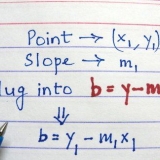 Point → (x₁, y₁)
Slope → m₁
lug into b = y-m
⇓
b = y₁ - m₁ x₁